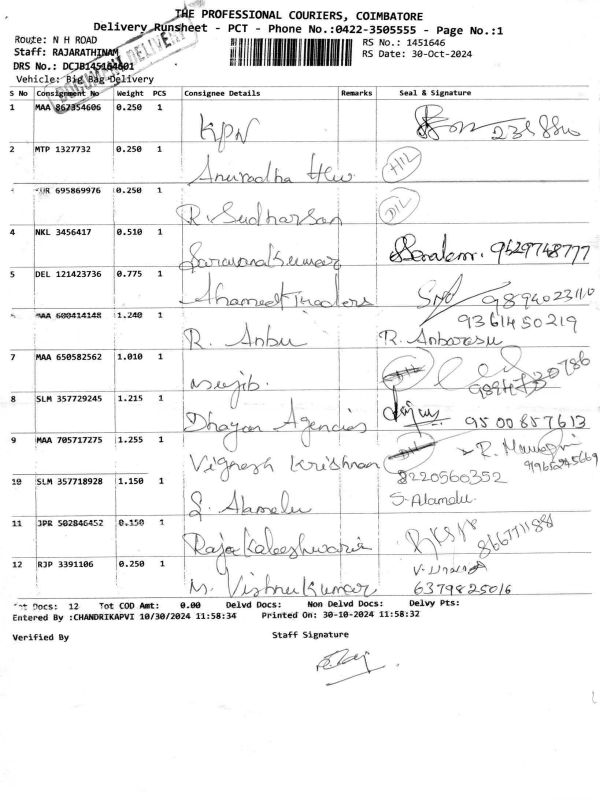 THE PROFESSIONAL COURIERS, COIMBATORE
Delivery Runsheet - PCT - Phone No.:0422-3505555 - Page No.:1
Route: N H ROAD
RS No.: 1451646
Staff: RAJARATHINAM
RS Date: 30-Oct-2024
DRS No.: DCJB145164601
Vehicle: Big Bag Delivery
DOCUMENT DELIVERY
S No Consignment No Weight PCS Consignee Details Remarks Seal & Signature
1 MAA 867354606 0.250 1 KPN
2 MTP 1327732 0.250 1 Anuradha HIL
695869976 0.250 1 R. Sudharsan DIL
4 NKL 3456417 0.510 1 Saravanakumar 9529748777
5 DEL 121423736 0.775 1 Ahamed Traders 9894023110
9361450219
MAA 600414148 1.240 1 R. Anbu R. Anbarasu
7 MAA 650582562 1.010 1 Mujib.
8 SLM 357729245 1.215 1 Dhayan Agencies 9500857613
9 MAA 705717275 1.255 1 Vignesh Krishnan DIL
8220560352
10 SLM 357718928 1.150 1 S. Alamelu S. Alamelu
11 JPR 502846452 0.150 1 Raja Kaleeshwari
12 RJP 3391106 0.250 1 M. Vishnu Kumar 6379825016
Docs: 12 Tot COD Amt: 0.00 Delvd Docs: Non Delvd Docs: Delvy Pts:
Entered By :CHANDRIKAPVI 10/30/2024 11:58:34 Printed On: 30-10-2024 11:58:32
Verified By
Staff Signature